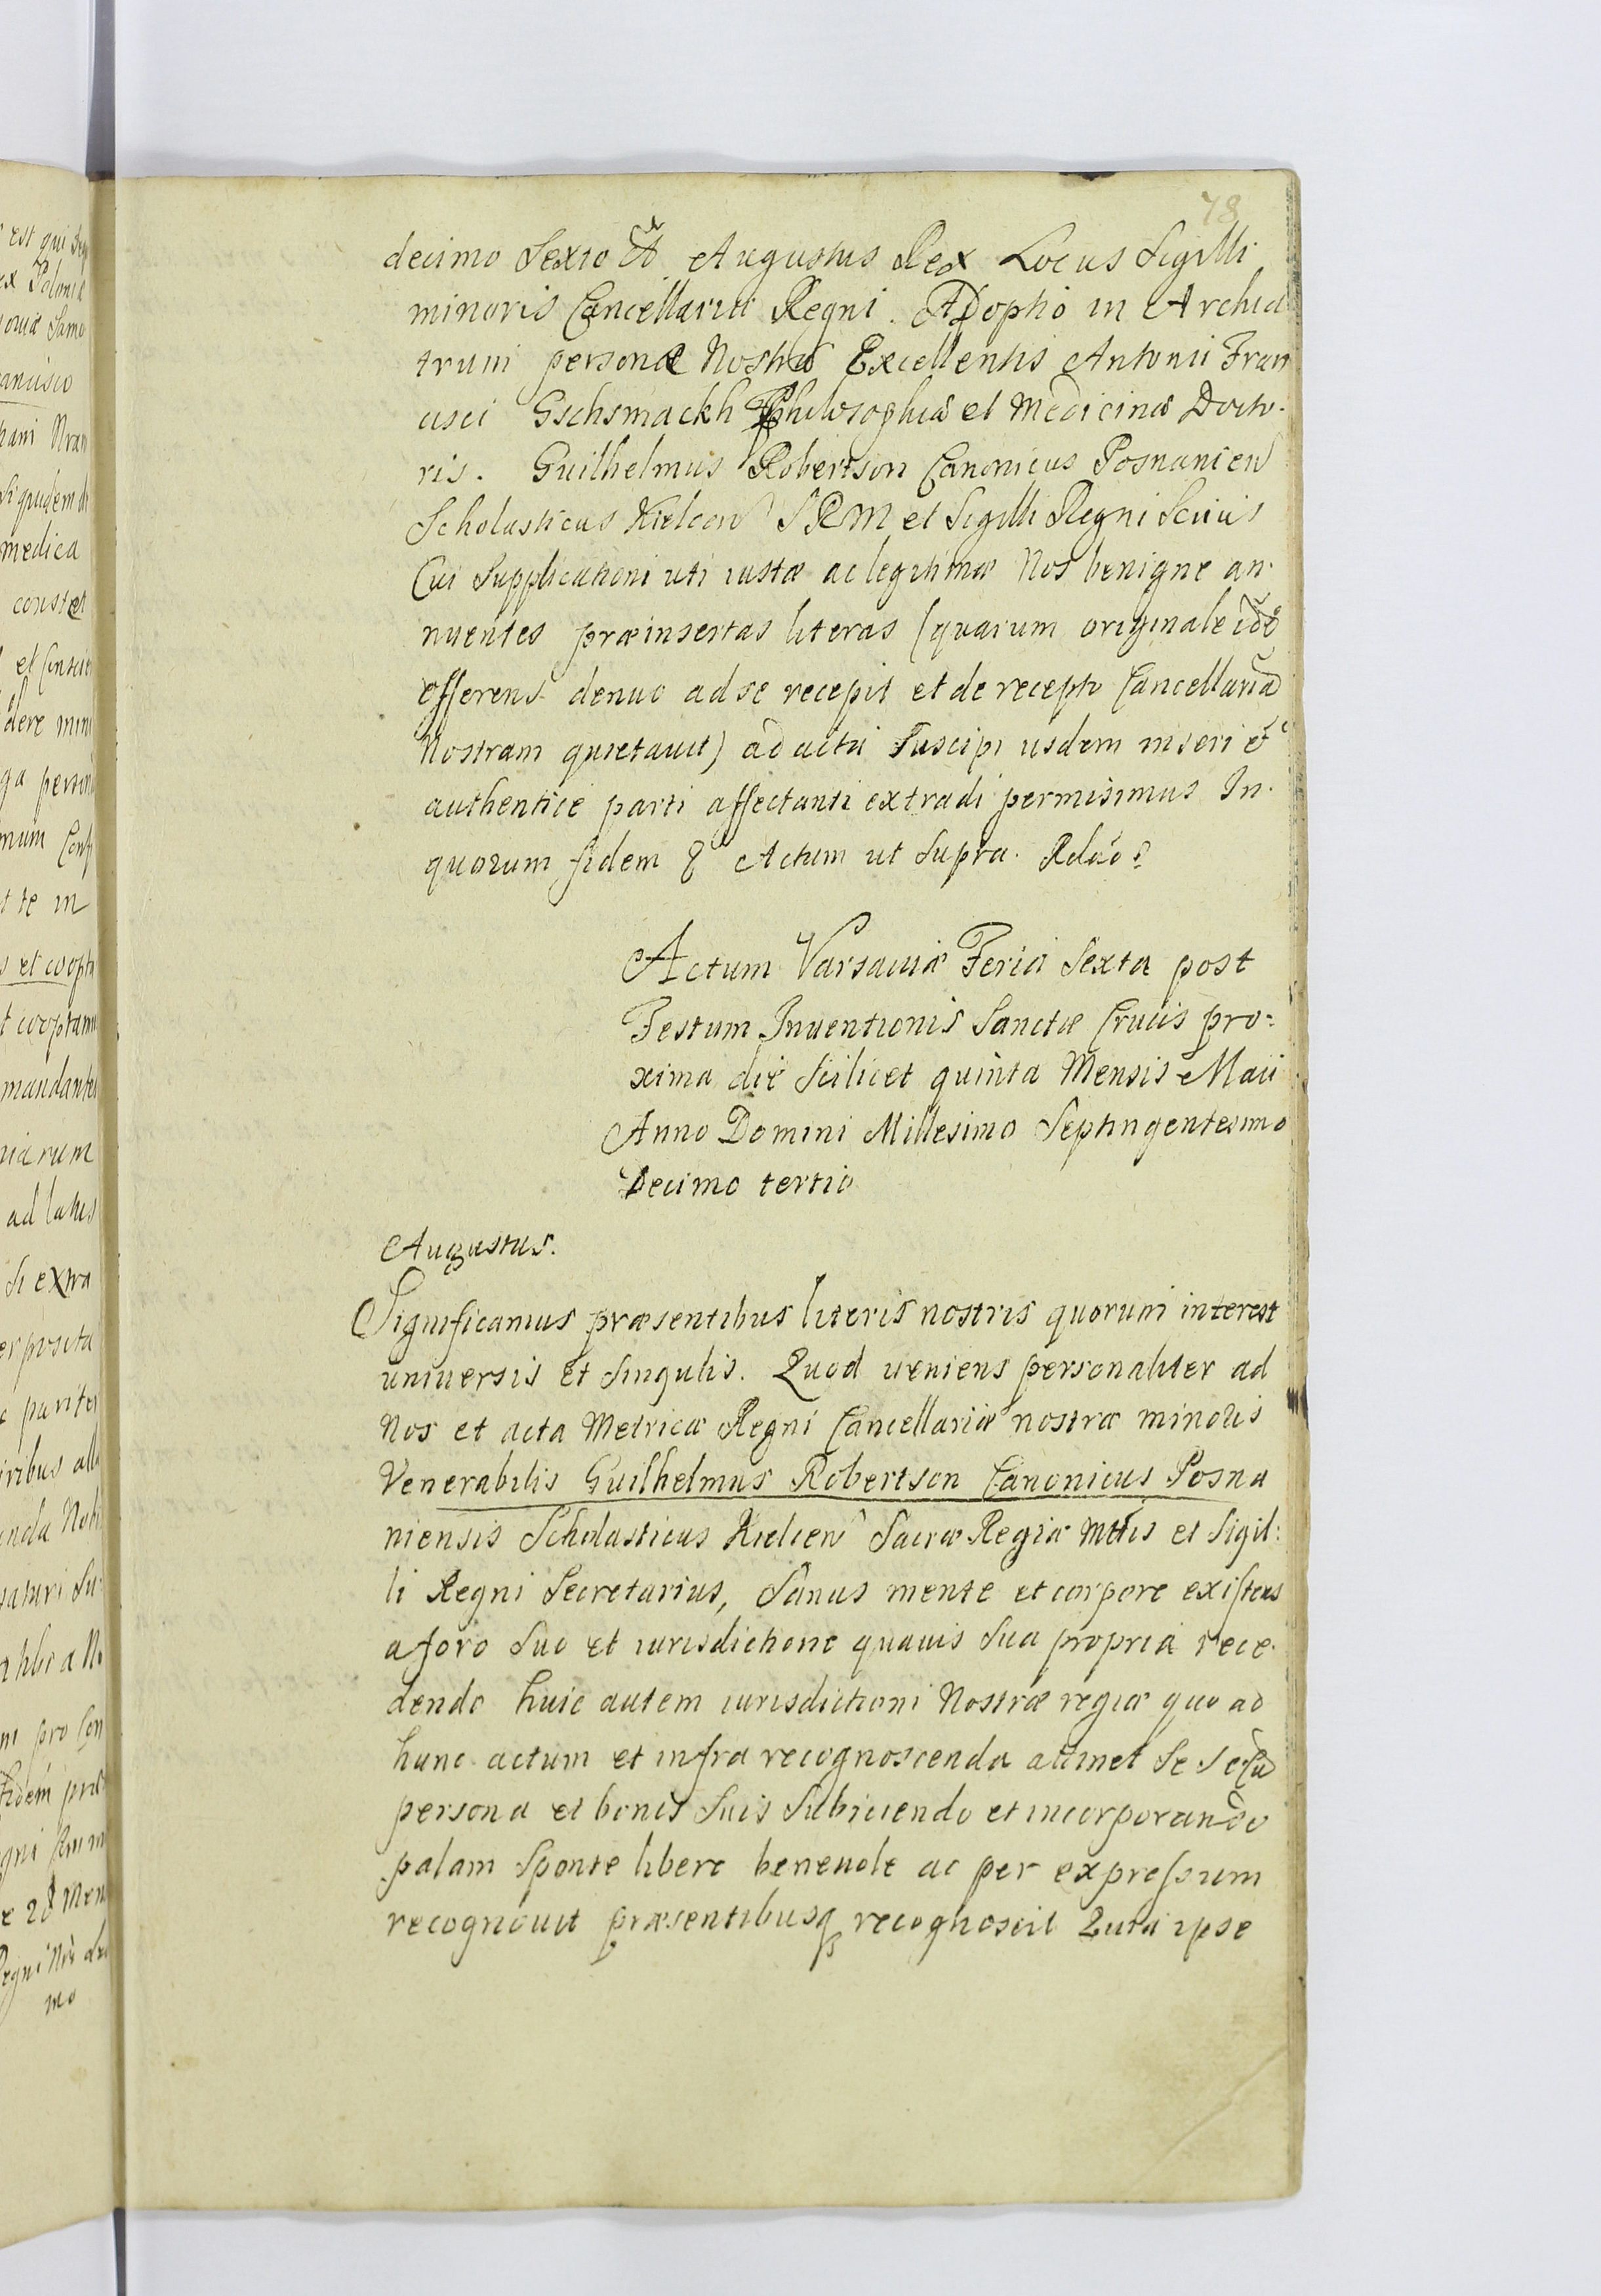 78
decimo Sexto Augustus Rex Locus Sigilli
minoris Cancellariæ Regni. Adoptio in Archia
trum personæ Nostræ Excellentis Antonii Fran
cisci Gschsmackh Philosophiæ et Medicinæ Docto-
ris. Guilhelmus Robertson Canonicus Posnanien
Scholasticus Kielcen S R M et Sigilli Regni
Cui Supplicationi uti iustæ ac legitimæ Nos benigne an-
nuentes præinsertas literas (quarum originale idē
offerens denuo ad se recepit et de recepto Cancellariā
Nostram quietauit) ad acta Suscipi iisdem inseri et
authentice parti affectanti extradi permisimus In-
quorum fidem Actum ut Supra.
Actum Varsauiæ Feria Sexta post
Festum Inuentionis Sanctæ Crucis pro=
xima die Scilicet quinta Mensis Maii
Anno Domini Millesimo Septingentesimo
Decimo tertio
Augustus.
Significamus præsentibus literis nostris quorum interest
uniuersis et Singulis. Quod ueniens personaliter ad
Nos et acta Metricæ Regni Cancellariæ nostræ minoris
Venerabilis Guilhelmus Robertson Canonicus Posna
niensis Scholasticus Kielcen Sacræ Regiæ Mttis et Sigil:
li Regni Secretarius, Sanus mente et corpore existens
a foro Suo et iurisdictione quauis Sua propria rece-
dendo huic autem iurisdictioni Nostræ regiæ quo ad
hunc actum et infra recognoscenda attinet Se
persona et bonis Suis Subiiciendo et incorporando
palam Sponte libere beneuole ac per expressum
recognouit præsentibusq recognoscit Quia ipse